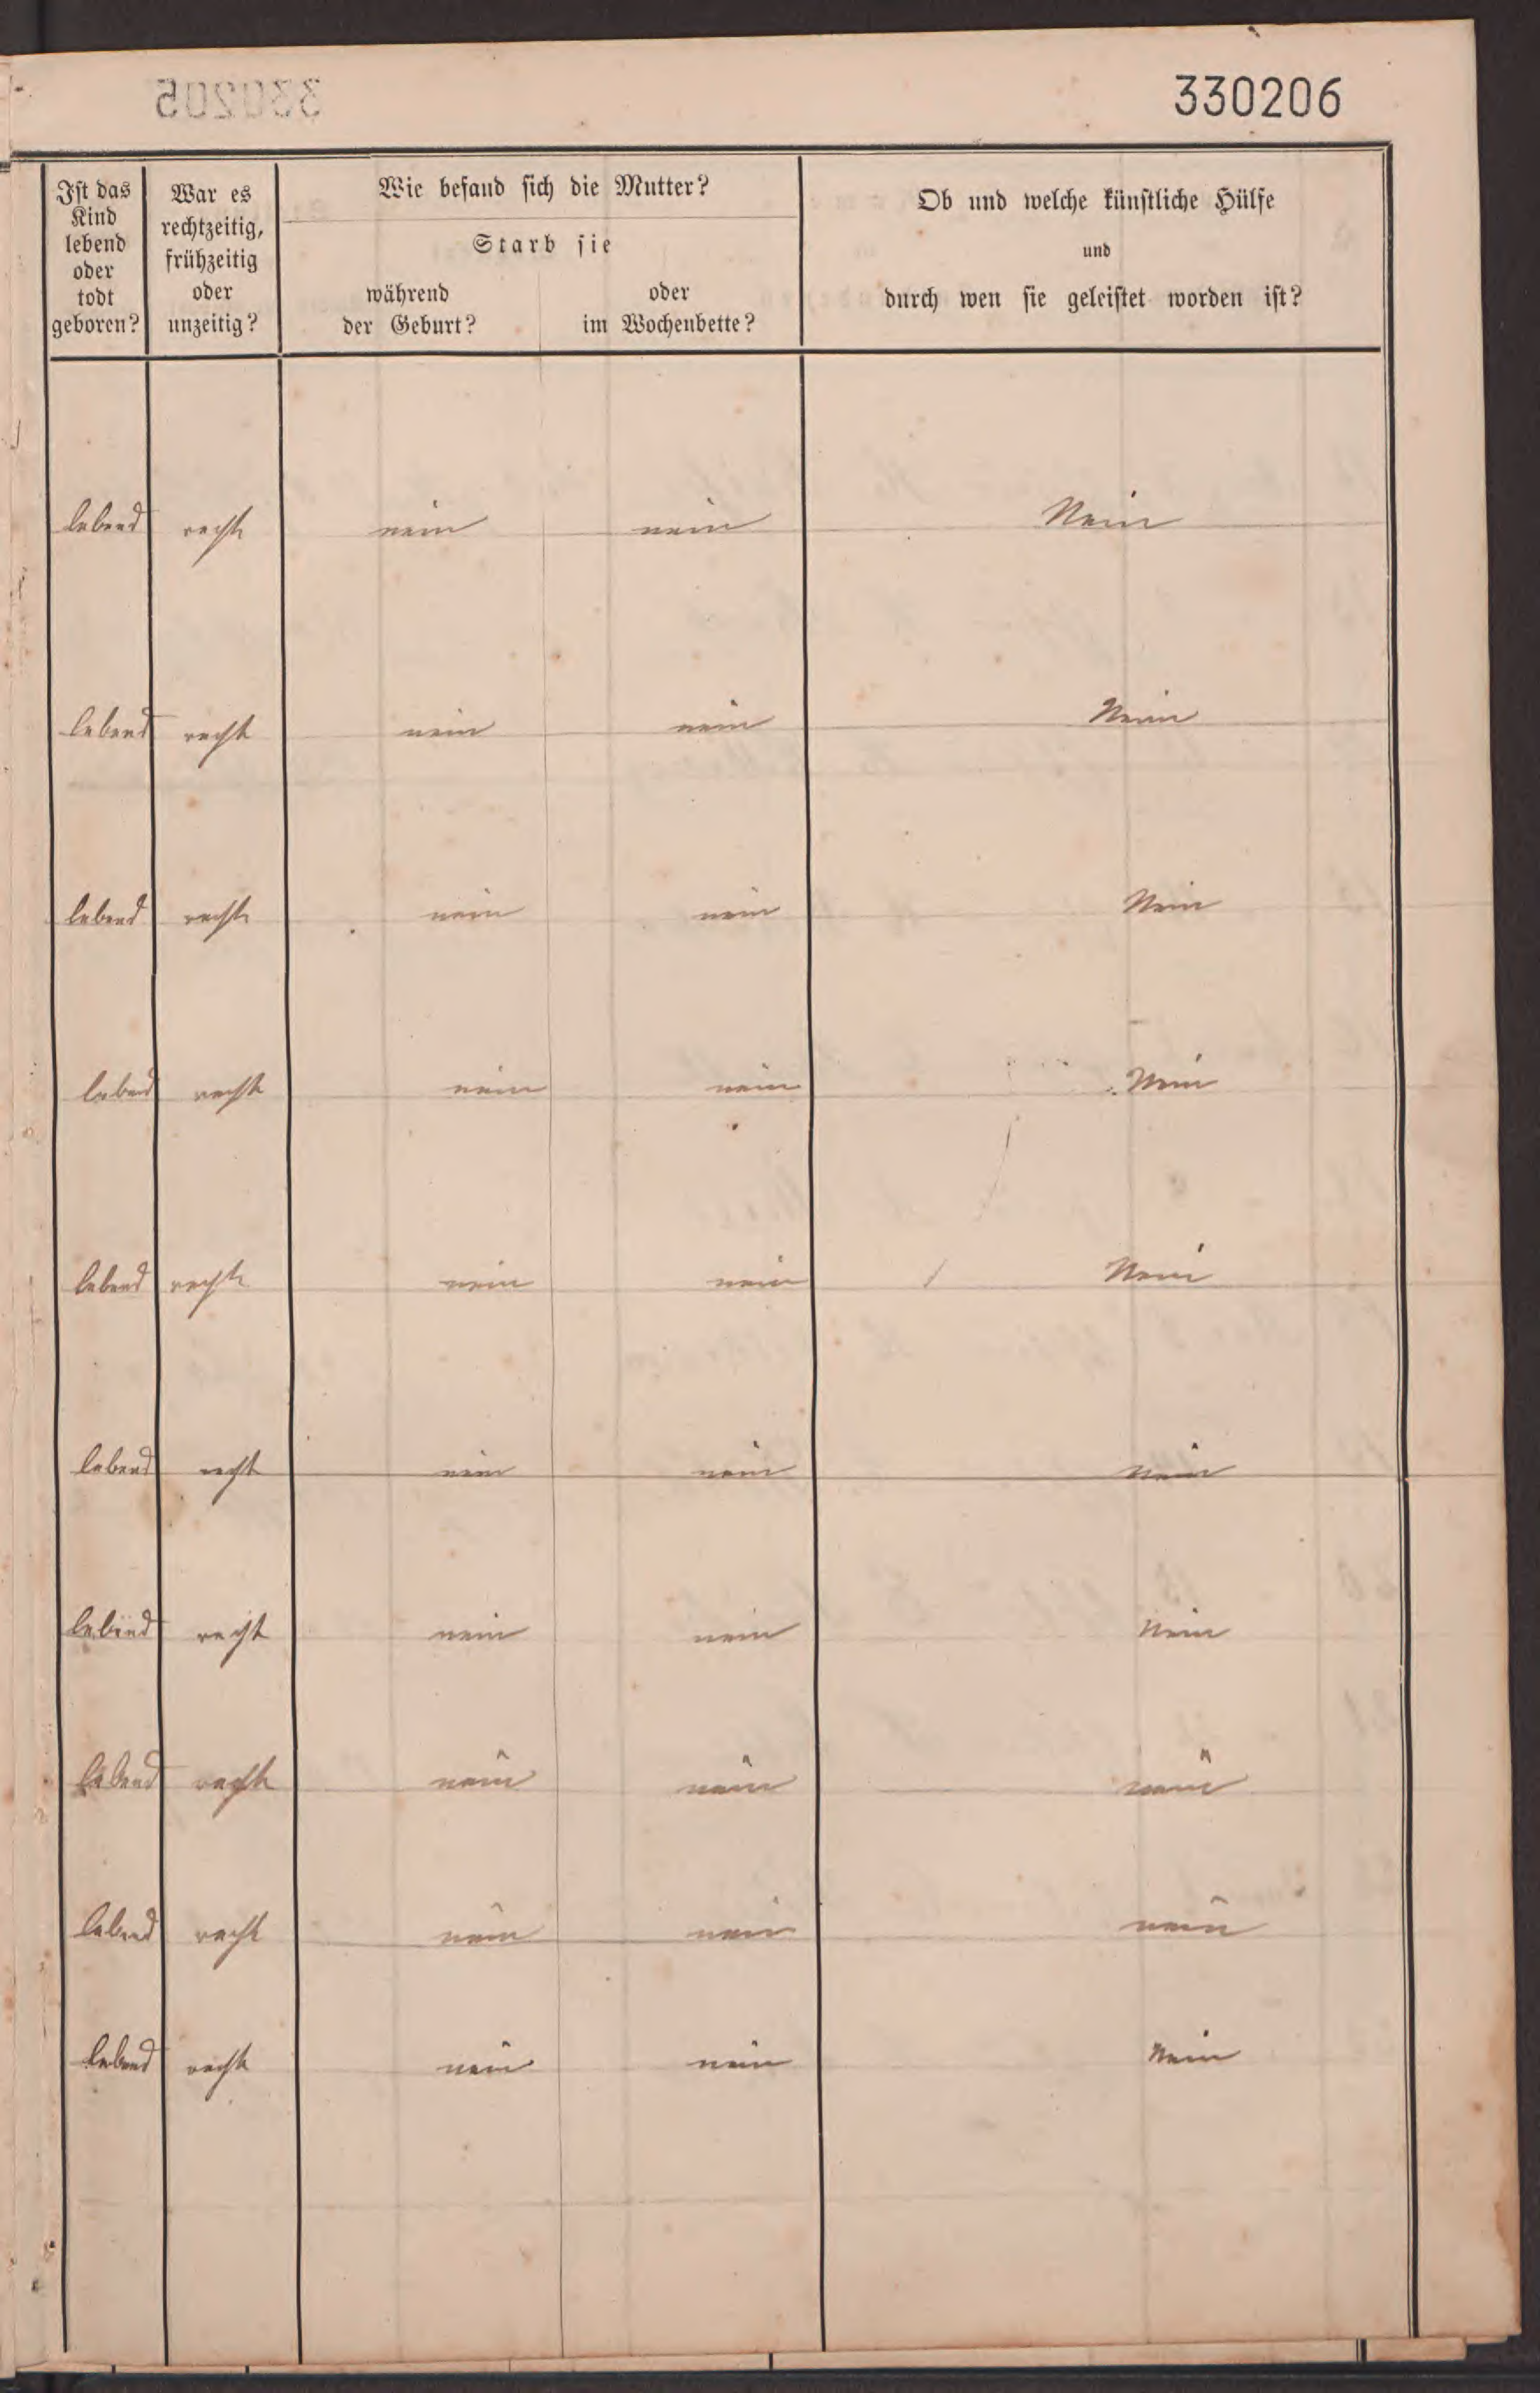 330206
Ist das
Kind
lebend
oder
todt
geboren?
War es
rechtzeitig,
frühzeitig
oder
unzeitig?
Wie befand sich die Mutter?
Starb sie
während
der Geburt?
oder
im Wochenbette?
Ob und welche künstliche Hülfe
und
durch wen sie geleistet worden ist?
lebend recht nein nein Nein
lebend recht nein nein Nein
lebend recht nein nein Nein
lebend recht nein nein Nein
lebend recht nein nein Nein
lebend recht nein nein Nein
lebend recht nein nein Nein
lebend recht nein nein nein
lebend recht nein nein nein
lebend recht nein nein Nein